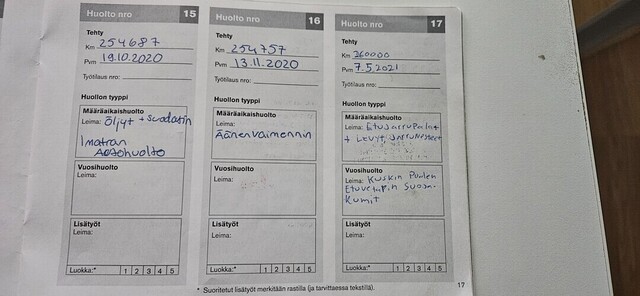 Huolto nro 15
Tehty
Km 254687
Pvm 19.10.2020
Työtilaus nro:
Huollon tyyppi
Määräaikaishuolto
Leima: Öljyt + Suodatin
Imatran
Autohuolto
Vuosihuolto
Leima:
Lisätyöt
Leima:
Luokka:* 1 2 3 4 5
Huolto nro 16
Tehty
Km 254757
Pvm 13.11.2020
Työtilaus nro:
Huollon tyyppi
Määräaikaishuolto
Leima:
Äänenvaimennin
Vuosihuolto
Leima:
Lisätyöt
Leima:
Luokka:* 1 2 3 4 5
Huolto nro 17
Tehty
Km 260000
Pvm 7.5.2021
Työtilaus nro:
Huollon tyyppi
Määräaikaishuolto
Leima: Etujarrupalat
+ Levyt Jarrunesteet
Vuosihuolto
Leima: Kuskin Puolen
Etuvetarin Suoja
Kumit
Lisätyöt
Leima:
Luokka:* 1 2 3 4 5
* Suoritetut lisätyöt merkitään rastilla (ja tarvittaessa tekstillä).
17